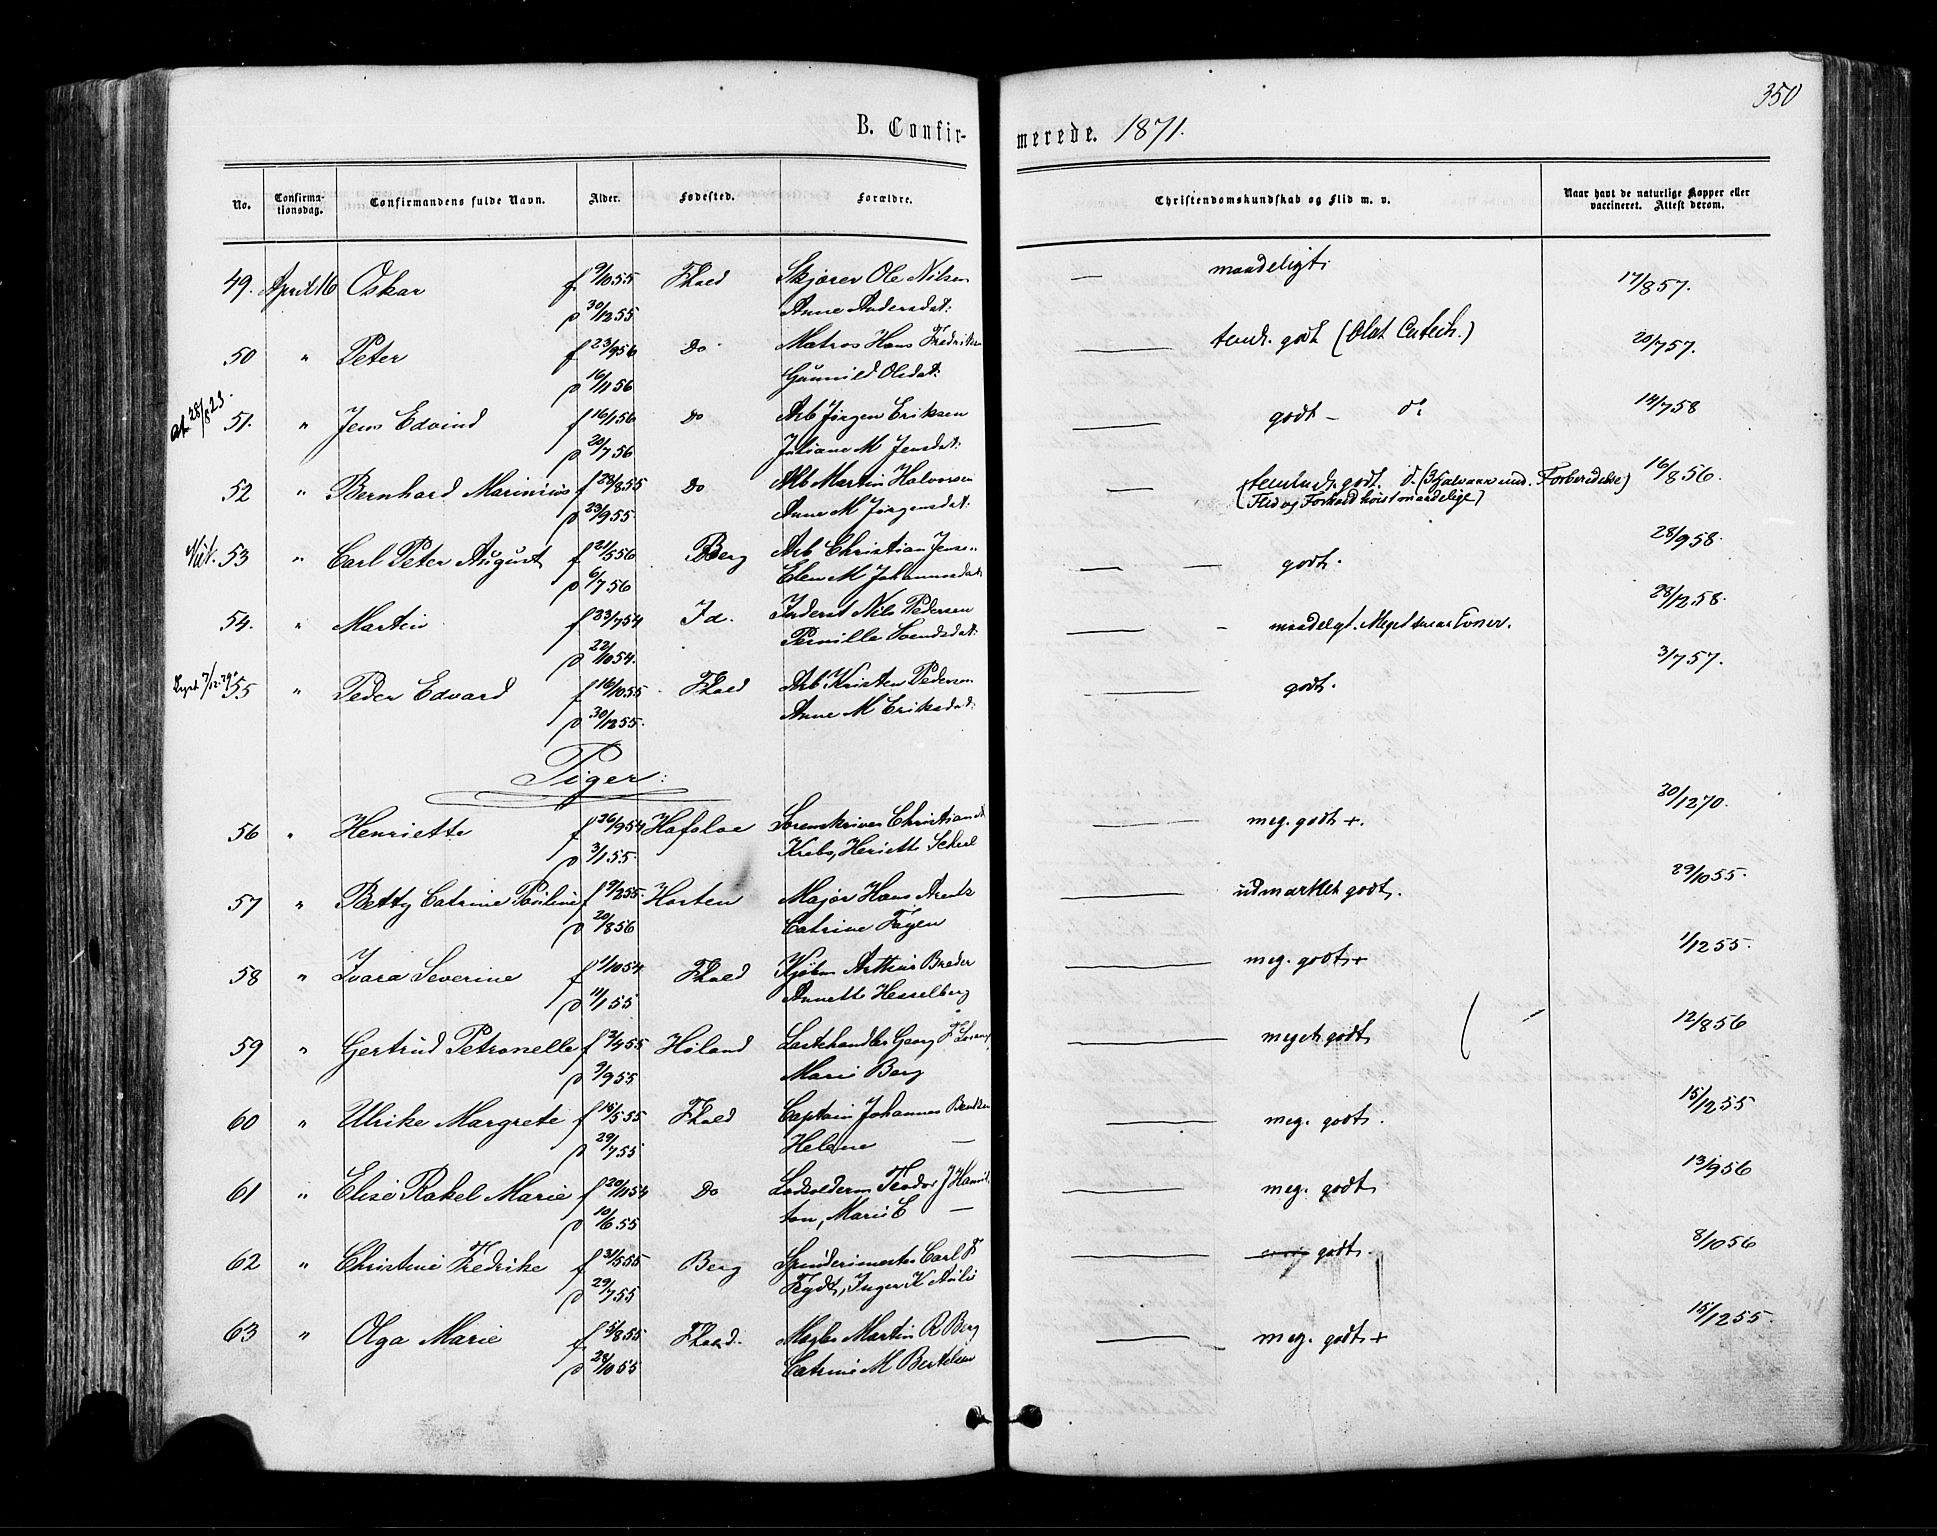 350
B. Confirmerede. 1871.
No. Confirmationsdag. Confirmandens fulde Navn. Alder. Fødested. Forældre. Christendomskundskab og Flid m. v. Naar havt de naturlige Kopper eller vaccineret. Attest derom.
49. April 16 Oskar f 9/10 55 Fhald Skjærer Ole Nilsen — maadeligt 17/8 57.
d 30/12 55 Anne Andersdat:
50 " Peter f 23/9 56 do Matros Hans Fredriksen — temk. godt (Olat Catech.) 20/7 57.
d 16/11 56 Gunnild Olsdat:
at. 28/8 23.
51. " Jens Edvind f 16/1 56 do Arb Jørgen Eriksen — godt — do 14/7 58
d 20/7 56 Juliane M Jensdat:
52 " Bernhard Marinius f 28/8 55 do Arb Martin Halvorsen — 16/8 56.
d 23/9 55. Anne M Jørgensdat: Flid og Forhold høist maadelige)
53 " Carl Peter August f 21/5 56 Berg Arb Christian Jensen — — godt. 28/9 58.
d 6/7 56 Elen M Johannesdat:
54. " Martin f 23/7 54 Id. Inderst Nils Pedersen — maadelgt. Meget smaa Evner. 28/12 58.
d 22/10 54. Pernille Svendsdat:
55 " Peder Edvard f 16/10 55 Fhald Arb Kristen Pedersen — godt. 3/7 57.
d 30/12 55. Anne M Eriksdat:
Piger:
56 " Henriette f 26/9 54 Hafsloe Sorenskriver Christian — meg. godt +. 20/12 70.
d 3/1 55. Krebs, Heriette Scheel
57 " Betty Catrine f 9/2 55. Horten Major Hans — udmærket godt. 29/10 55.
d 20/8 56 Catrine
58 " Ivara Severine f 1/10 54 Fhald Kjøbm — meg. godt + 1/12 55.
d 11/1 55 Annette Hesselberg
59 " Gertrud Petronelle f 2/4 55 Høland Georg F — meget godt 12/8 56
d 9/9 55 Marie Berg
60 " Ulrike Margrete f 15/5 55 Fhald Captain Johannes — meg. godt. 15/12 55
d 29/7 55 Helene —
61 " Elise Rakel Marie f 20/11 54 do — meg. godt 13/9 56
d 10/6 55 ton, Marie E —
62 " Christine Fredrike f 31/5 55 Berg Spinderimester Carl F — godt. 8/10 56
d 29/7 55
63 " Olga Marie f 5/8 55 Fhald. Mægler Martin R Berg — meg. godt + 15/12 55.
d 28/10 55 Catrine M Bertelsen